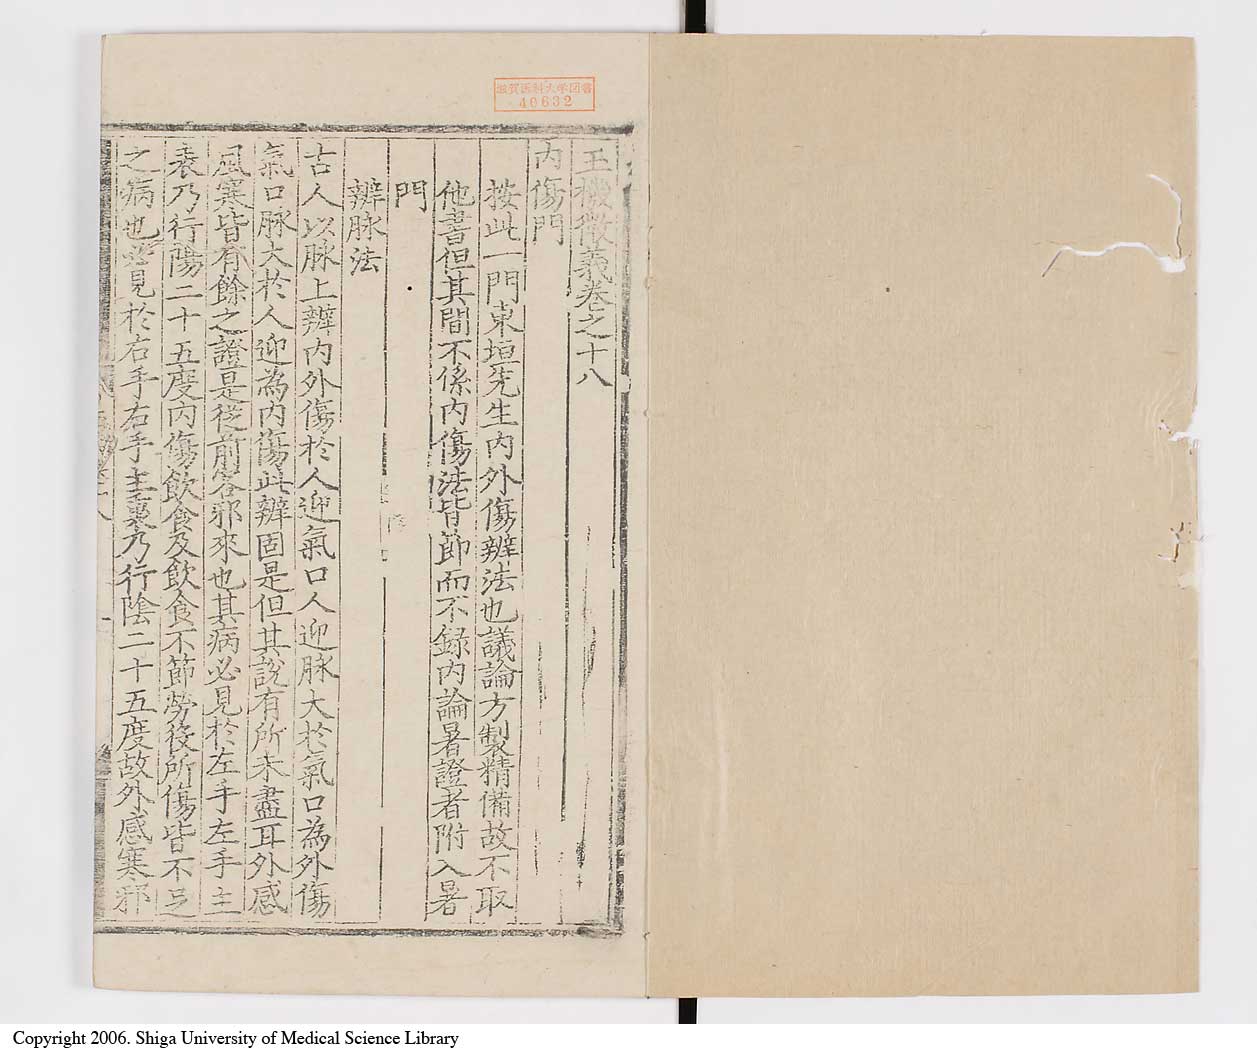 滋賀医科大学図書
40632
玉機微義卷之十八
內傷門
按此一門東垣先生內外傷辨法也議論方製精備故不取
他書但其間不係內傷法皆節而不録內論暑證者附入暑
門
辨脉法
古人以脉上辨內外傷於人迎氣口人迎脉大於氣口為外傷
氣口脉大於人迎為內傷此辨固是但其說有所未盡耳外感
風寒皆有餘之證是從前客邪來也其病必見於左手左手主
表乃行陽二十五度內傷飲食及飲食不節勞役所傷皆不足
之病也必見於右手右手主裏乃行陰二十五度故外感寒邪
Copyright 2006. Shiga University of Medical Science Library